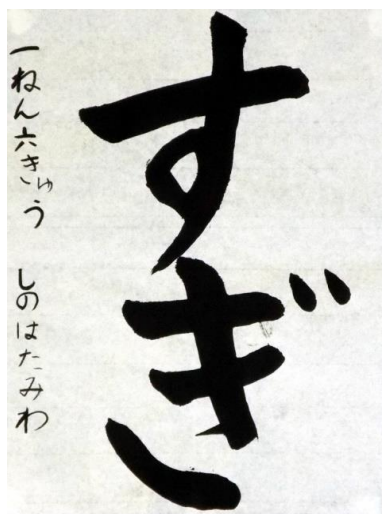 すぎ
一ねん六きゅう しのはたみわ